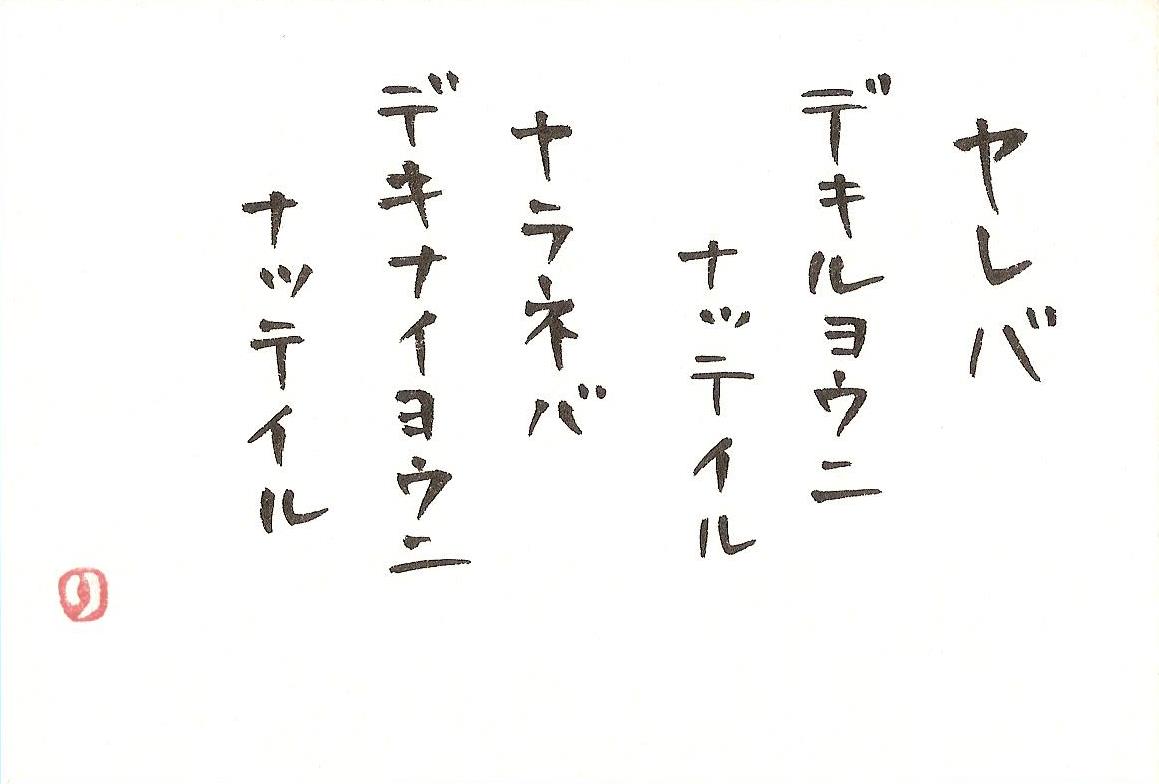 ヤレバ
デキルヨウニ
ナッテイル
ヤラネバ
デキナイヨウニ
ナッテイル
り